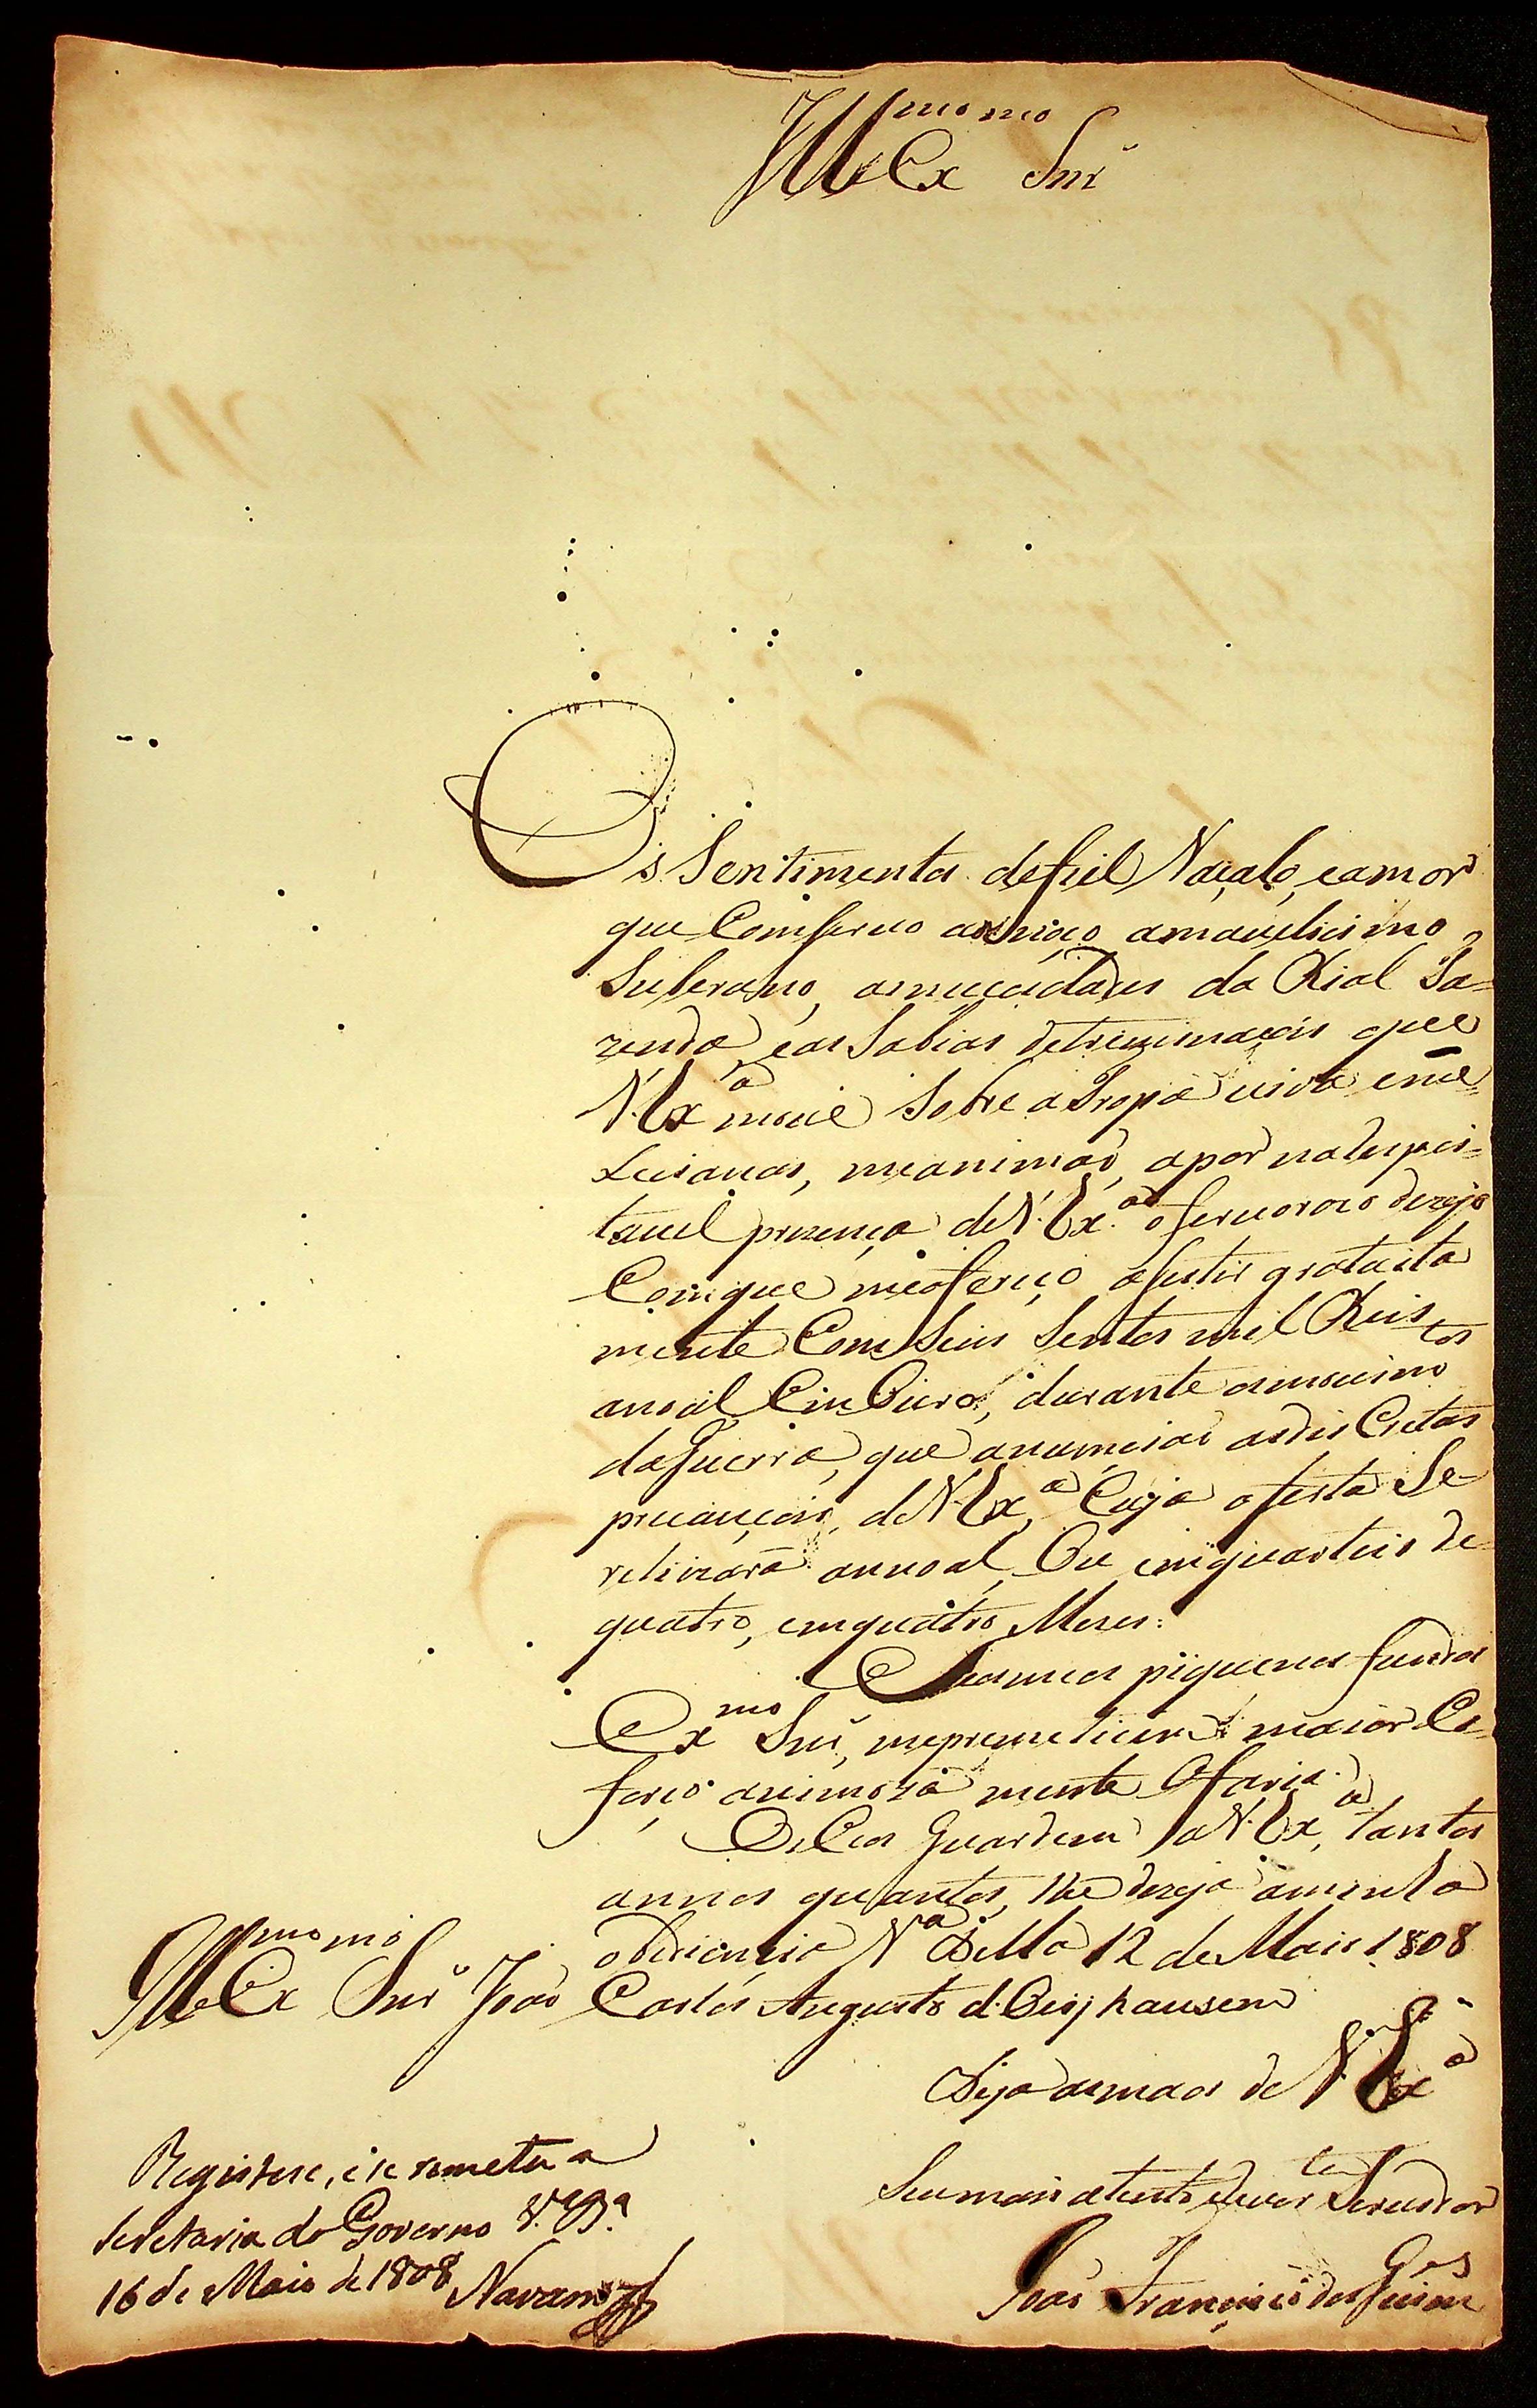 Ill.mo Ex.mo Snr̃
Os Sentimentos de fiel Vaçalo, e amor
que Comservo ao noço amavelicimo
Suberano, as nececidades da Rial Fa=
zenda, e as Sabias detreminaçois que
V. Ex.a move Sobre a Tropa viva e me=
Lisianas, me animaõ, a por na Respei=
tavel prezença de V. Ex.a o fervorozo dezejo
Com que me ofereço, asestir gratuita
mente Com Seis Sentos mil Reis
anoal Em Ouro, durante o
da Guerra, que anunciaõ as disCretas
prevençois, de V. Ex.a, Cuja oferta Se
relizará annoal, Ou em quarteis de
quatro, em quatro Mezes:
Se os meus piquenos fundos
Ex.mo Snr̃, me premeticem maior Es
forço animoza mente O faria.
Os Ceos Guardem a V. Ex.a, tantos
annos quantos, lhe dezeja a minha
obdiencia V.a Bella 12 de Maio 1808
Ill.mo Ex.mo Snr̃ Joaõ Carlos Augusto d. Oeijhausem
Bejo as maos de V. Ex.a
Seu mais atento e Servidor
Joaõ Francisco dos Guim.es
Registese, e se remeta a
Secretaria do Governo V.a B.a
16 de Maio de 1808 Navarros